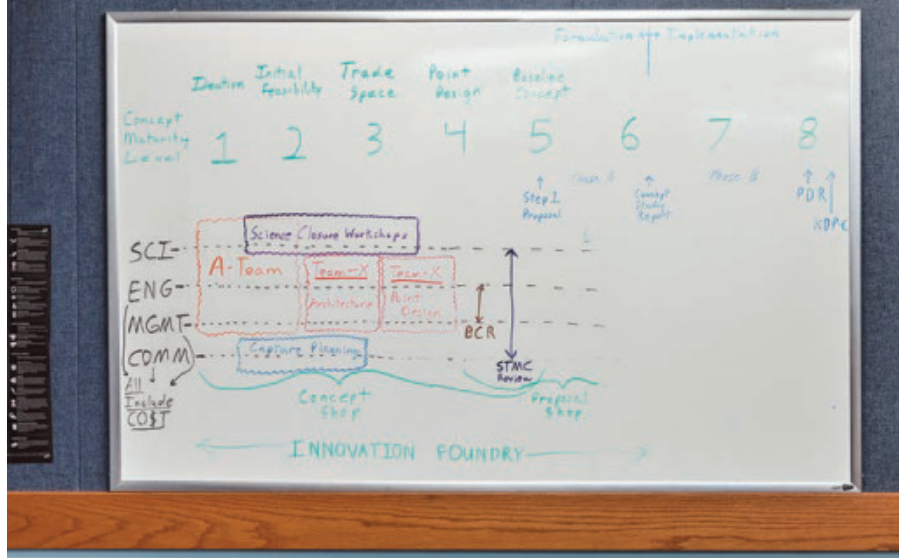 Formulation Implementation
Ideation
Initial
Feasibility
Trade
Space
Point
Design
Baseline
Concept
Concept
Maturity
Level
1 2 3 4 5 6 7 8
Step 1
Proposal
Phase A
Concept
Study
Report
Phase B
PDR
KDP-C
SCI
ENG
MGMT
COMM
All
Include
CO$T
Science Closure Workshops
A-Team
Team-X
Architecture
Team-X
Point
Design
Capture Planning
BCR
STMC
Review
Concept
Shop
Proposal
Shop
INNOVATION FOUNDRY